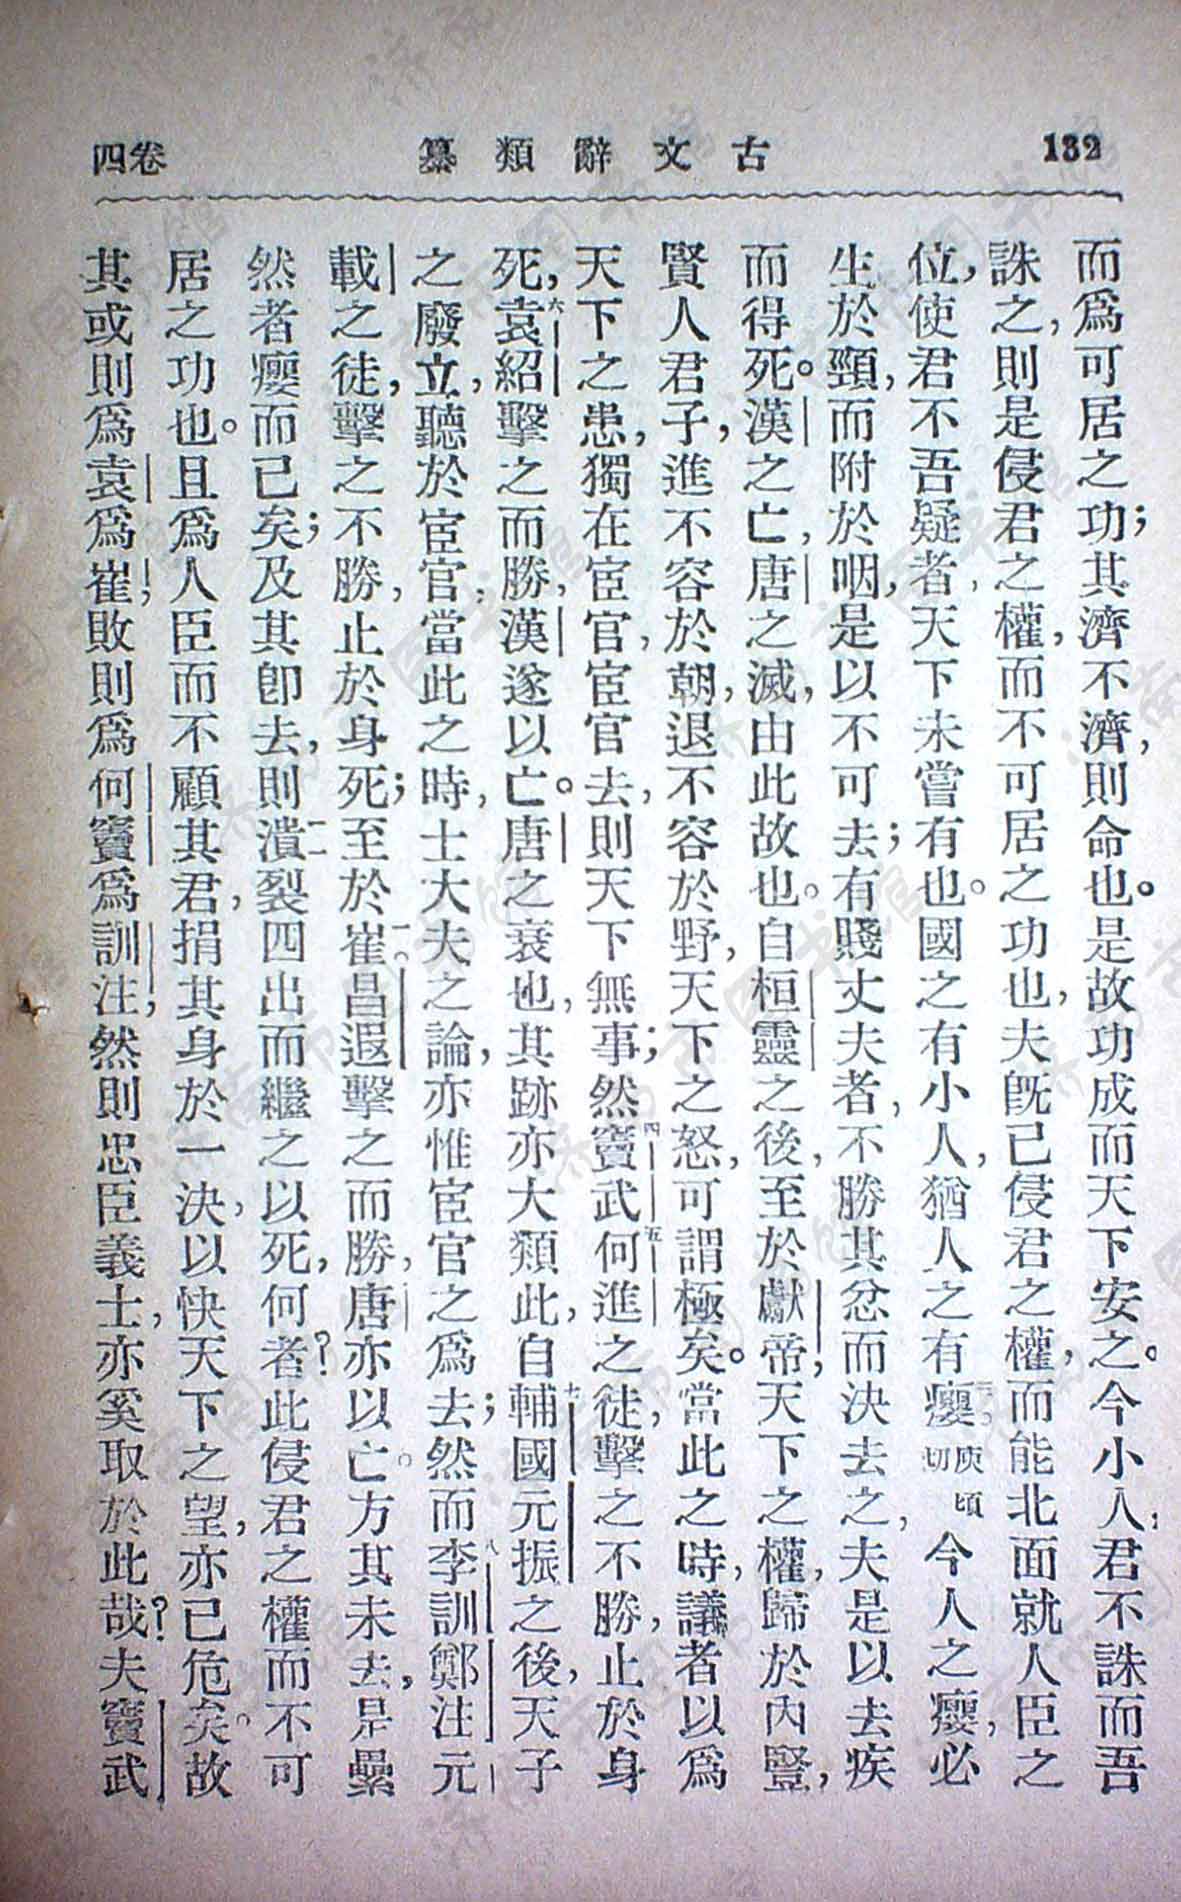 132
古文辭類纂
卷四
而爲可居之功；其濟不濟，則命也。是故功成而天下安之。今小人，君不誅而吾
誅之，則是侵君之權，而不可居之功也，夫旣已侵君之權，而能北面就人臣之
位，使君不吾疑者，天下未嘗有也。國之有小人，猶人之有癭，三庾頃切今人之癭，必
生於頸，而附於咽，是以不可去；有賤丈夫者，不勝其忿而決去之，夫是以去疾
而得死。漢之亡，唐之滅，由此故也。自桓靈之後，至於獻帝，天下之權，歸於內豎，
賢人君子，進不容於朝，退不容於野，天下之怒，可謂極矣。當此之時，議者以爲
天下之患，獨在宦官，宦官去，則天下無事；然四竇武五何進之徒，擊之不勝，止於身
死，六袁紹擊之而勝，漢遂以亡。唐之衰也，其跡亦大類此，自七輔國元振之後，天子
之廢立，聽於宦官，當此之時，士大夫之論，亦惟宦官之爲去；然而八李訓鄭注元
載之徒，擊之不勝，止於身死；至於一〇崔昌遐擊之而勝，唐亦以亡。方其未去，是纍
然者癭而已矣；及其卽去，則潰裂四出而繼之以死，何者？此侵君之權而不可
居之功也。且爲人臣而不顧其君，捐其身於一決，以快天下之望，亦已危矣。故
其或則爲袁爲崔；敗則爲何竇爲訓注，然則忠臣義士，亦奚取於此哉？夫竇武